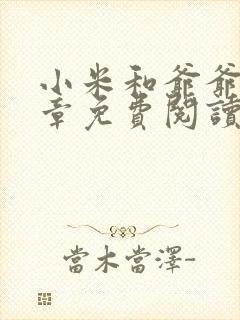 小米和爺爺
章免費閱讀
當木當澤-